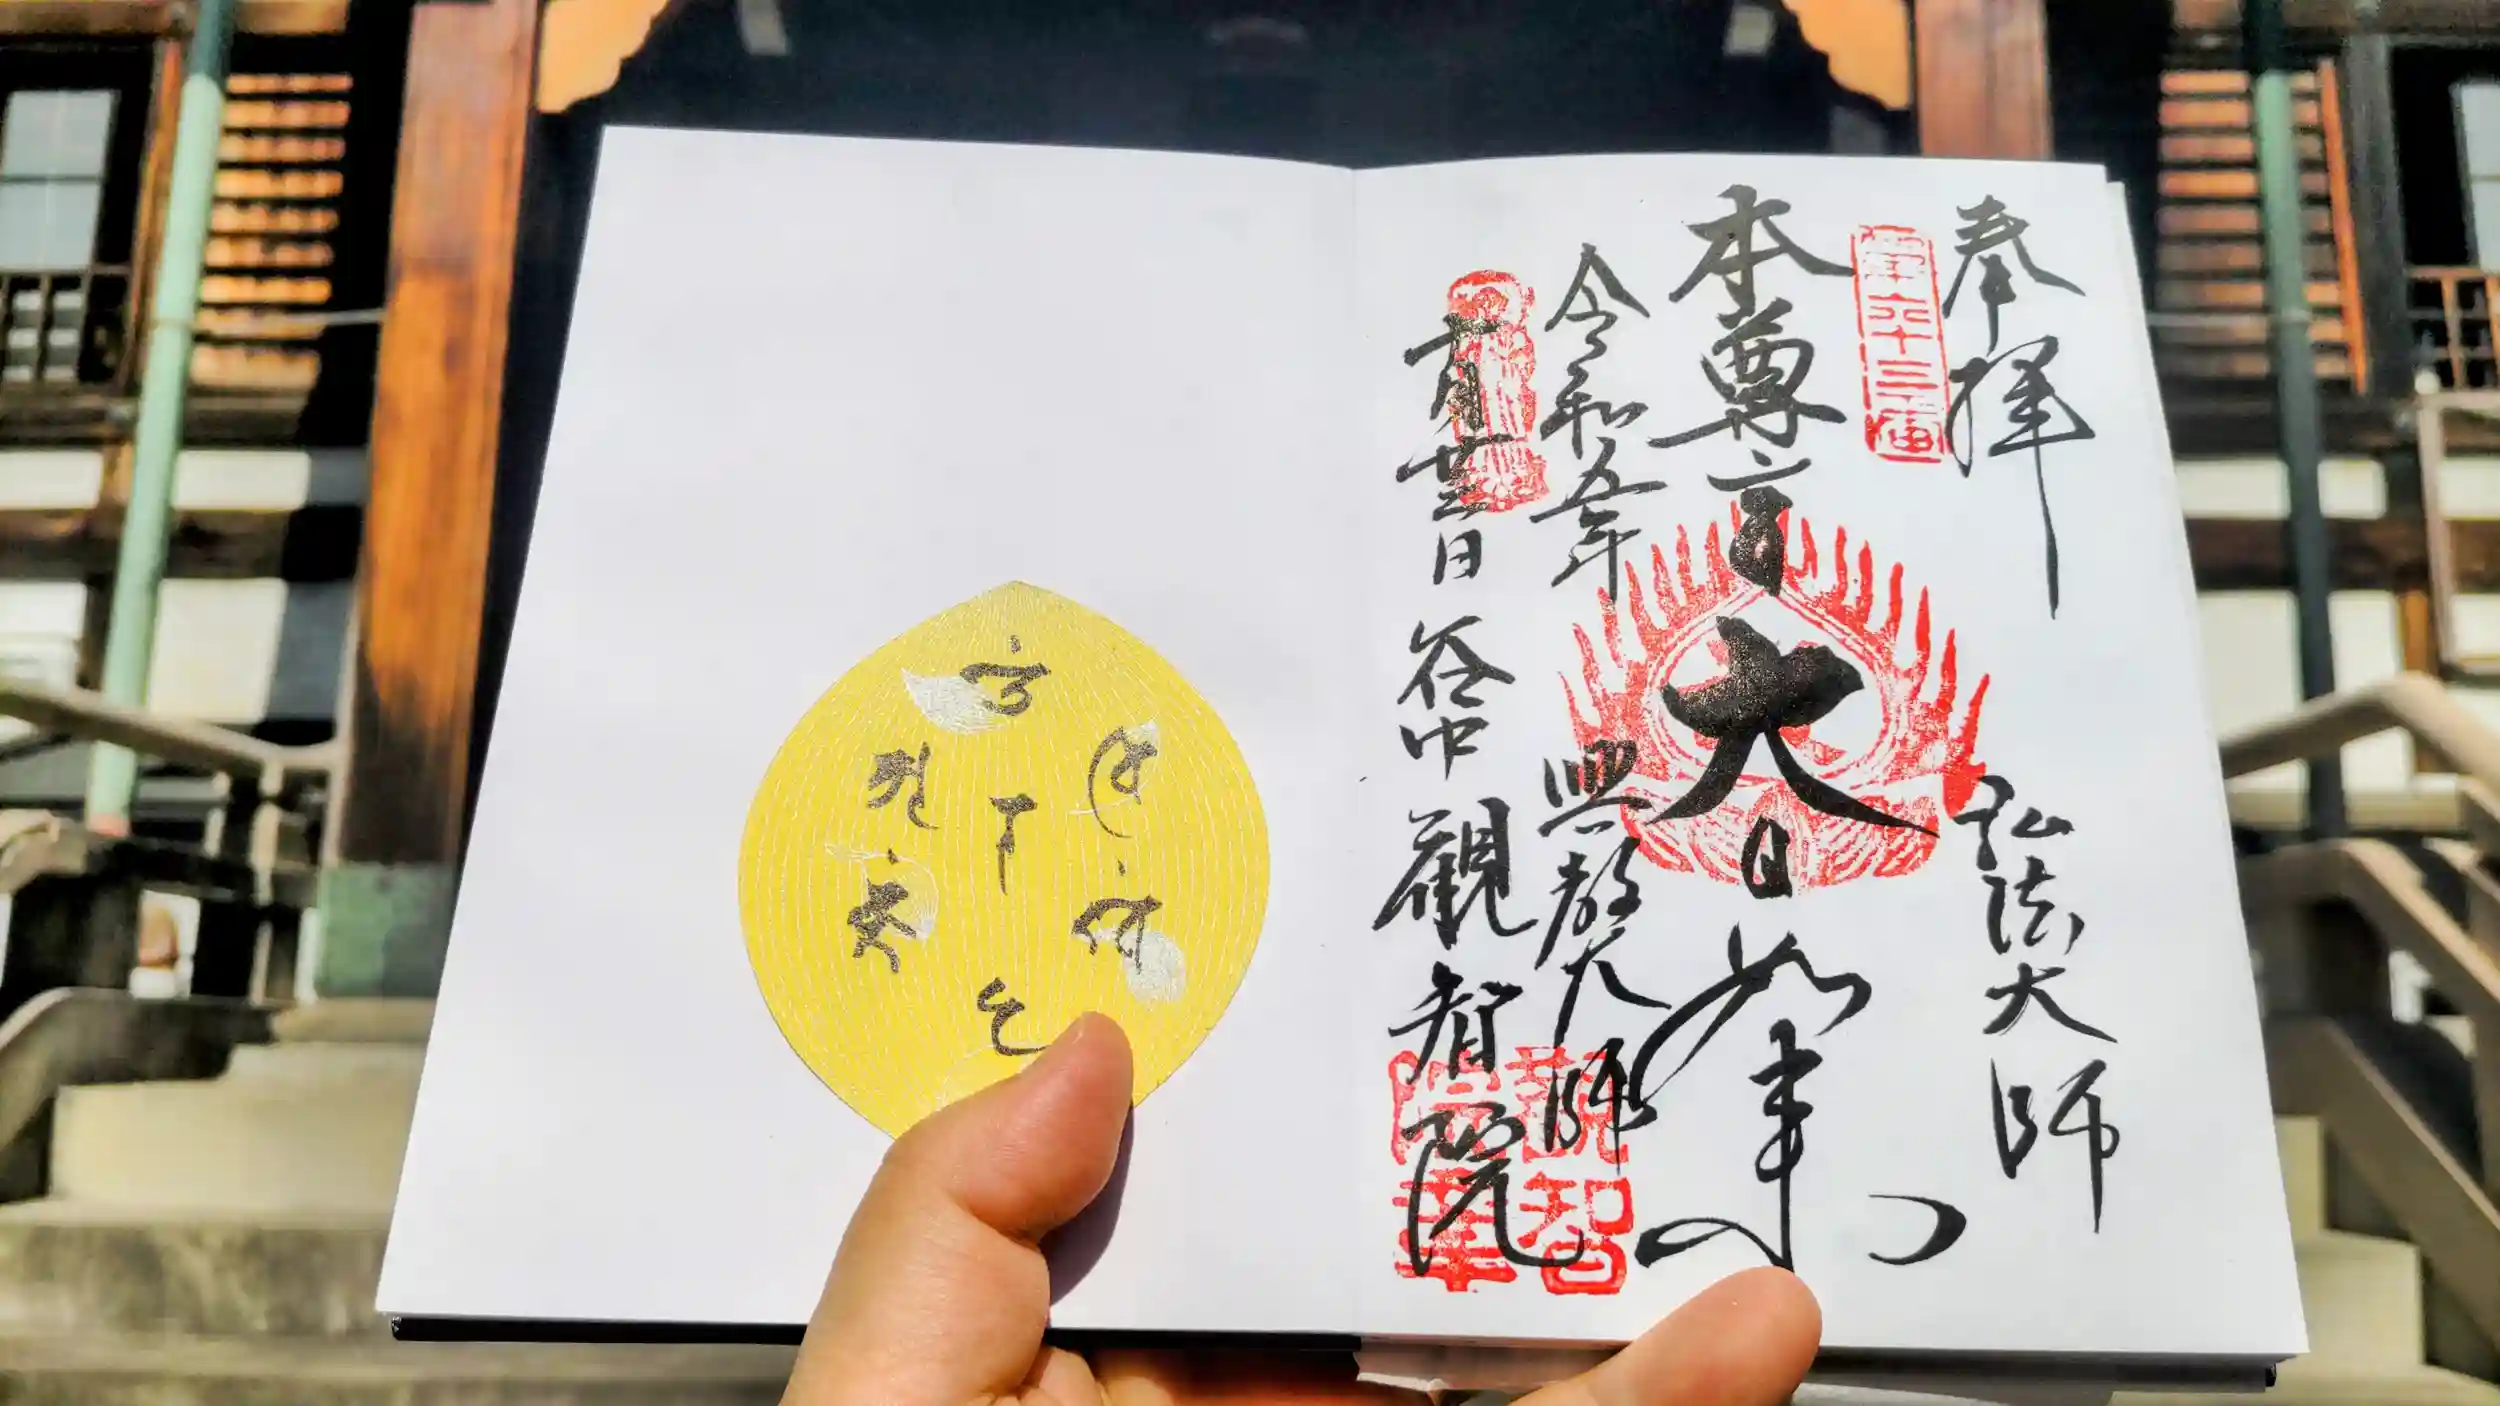 奉拝
弘法大師
第六十三番
本尊
大日如来
令和五年
興教大師
十月廿三日
谷中 觀智院
觀智
院章